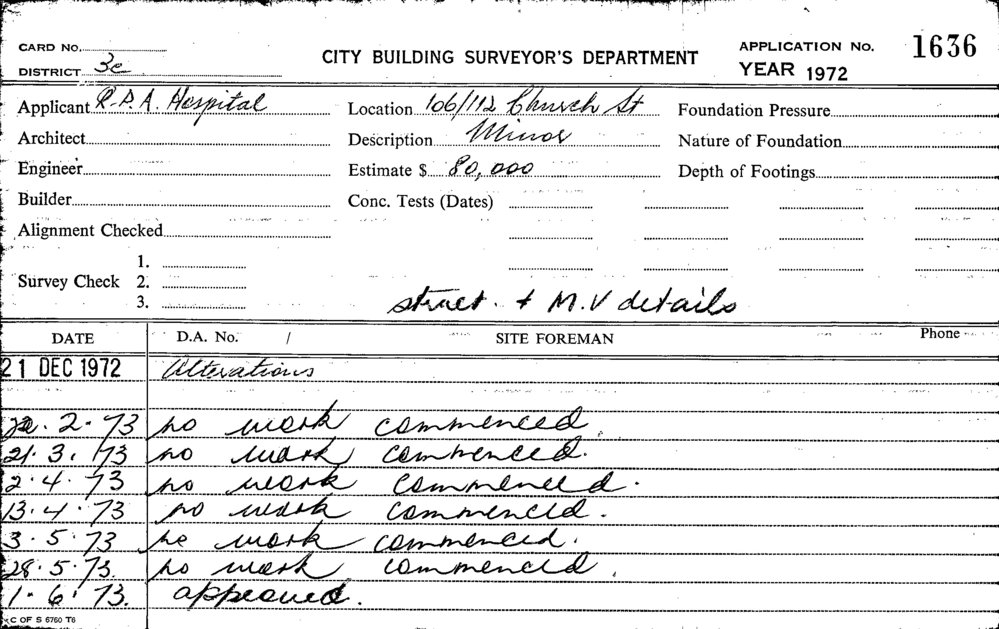 CARD NO.
DISTRICT 3c
CITY BUILDING SURVEYOR'S DEPARTMENT
APPLICATION No. 1636
YEAR 1972
Applicant R.P.A. Hospital
Location 106/112 Church St
Foundation Pressure
Architect
Description Minor
Nature of Foundation
Engineer
Estimate $ 80,000
Depth of Footings
Builder
Conc. Tests (Dates)
Alignment Checked
Survey Check 1.
2.
3.
struct. + M.V details
DATE D.A. No. / SITE FOREMAN Phone
21 DEC 1972 Alterations
22.2.73 no work commenced.
21.3.73 no work commenced.
2.4.73 no work commenced.
13.4.73 no work commenced.
3.5.73 no work commenced.
28.5.73. no work commenced.
1.6.73. approved.
C OF S 6760 T6